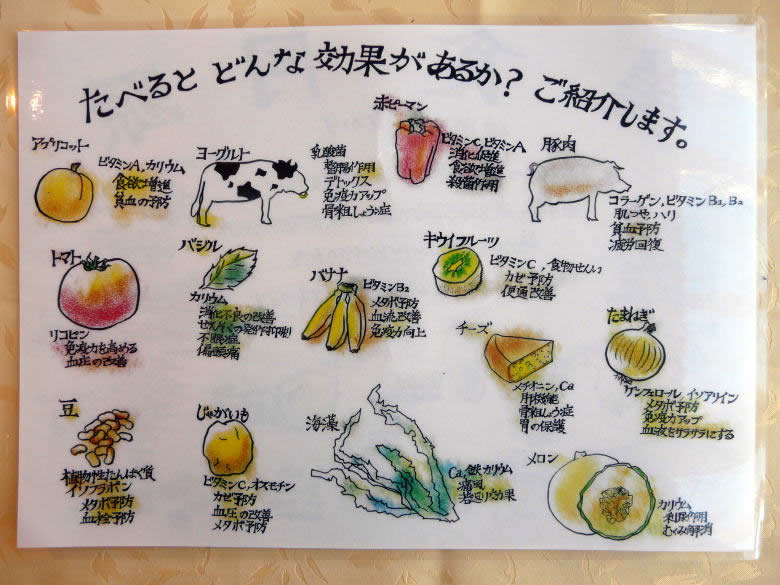 たべると どんな 効果があるか? ご紹介します。
アプリコット
ビタミンA,カリウム
食欲増進
貧血の予防
ヨーグルト
乳酸菌
整腸作用
デトックス
免疫力アップ
骨粗しょう症
赤ピーマン
ビタミンC,ビタミンA
消化促進
食欲増進
殺菌作用
豚肉
コラーゲン,ビタミンB₁,B₂
肌つや,ハリ
貧血予防
疲労回復
トマト
リコピン
免疫力を高める
血圧の改善
バジル
カリウム
消化不良の改善
ぜんそくの発作抑制
不眠症
偏頭痛
バナナ
ビタミンB₂
メタボ予防
血流改善
免疫力向上
キウイフルーツ
ビタミンC,食物せんい
カゼ予防
便通改善
チーズ
メチオニン,Ca
肝機能
骨粗しょう症
胃の保護
たまねぎ
ケンフェロール,イソアリイン
メタボ予防
免疫力アップ
血液をサラサラにする
豆
植物性たんぱく質
イソフラボン
メタボ予防
血栓予防
じゃがいも
ビタミンC,オスモチン
カゼ予防
血圧の改善
メタボ予防
海藻
Ca,鉄,カリウム
痛風
若返り効果
メロン
カリウム
利尿作用
むくみ解消